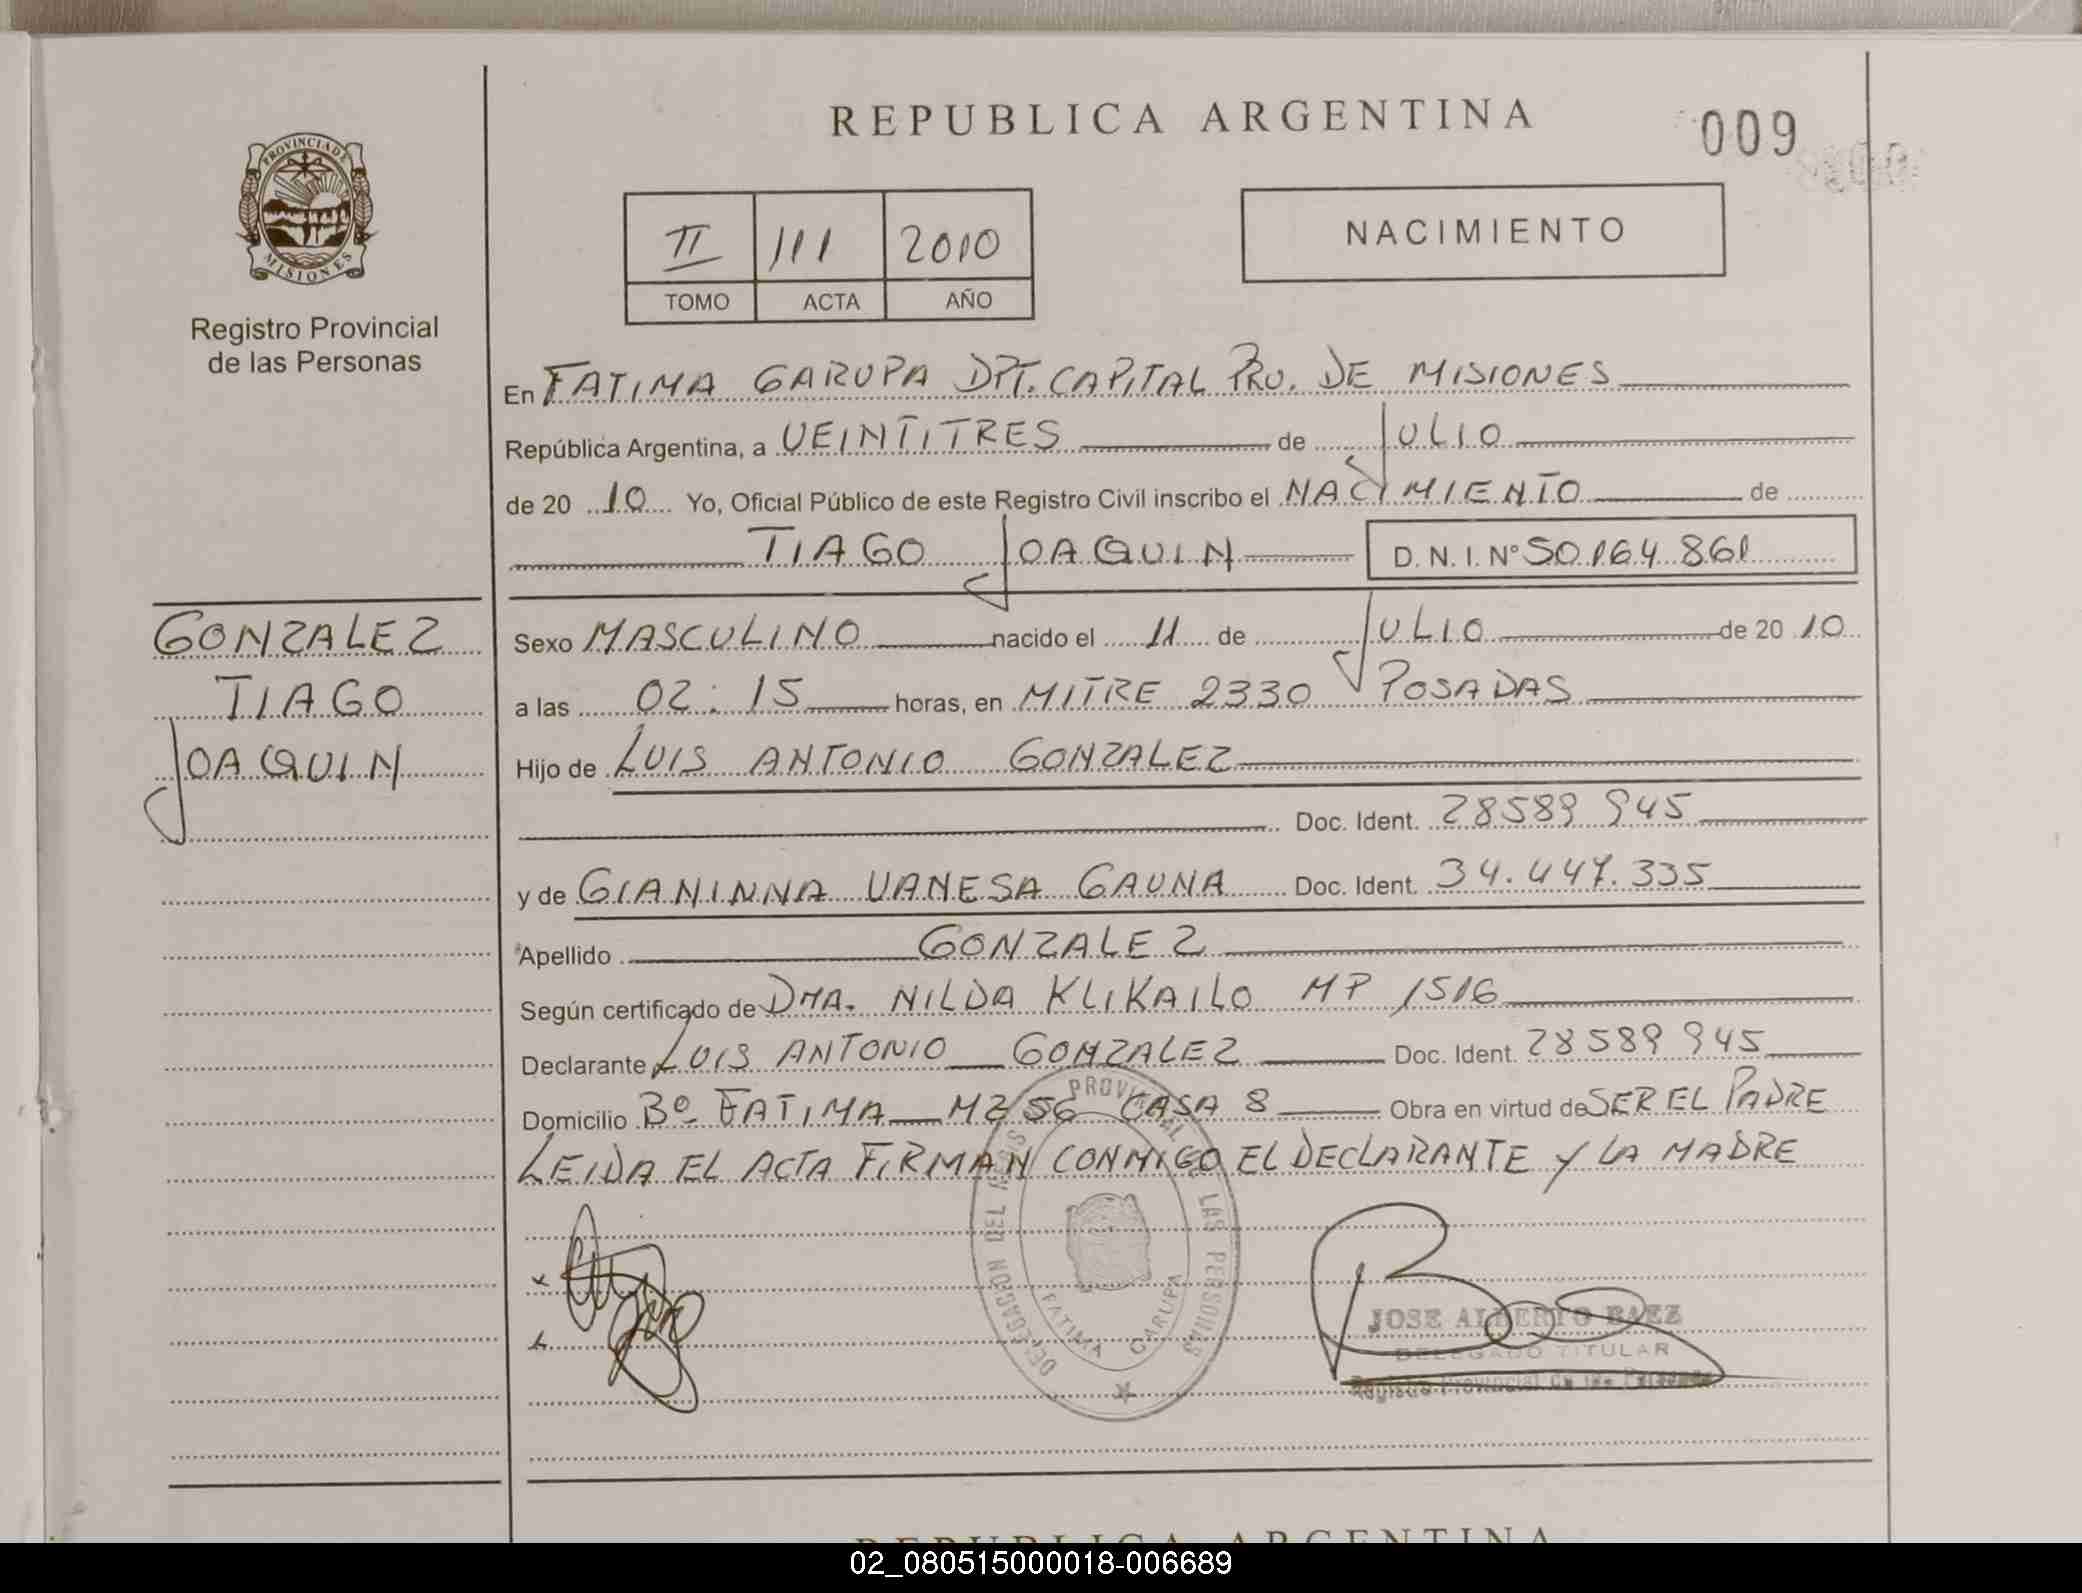 REPUBLICA ARGENTINA
009
PROVINCIA DE
MISIONES
Registro Provincial
de las Personas
II 111 2010
TOMO ACTA AÑO
NACIMIENTO
En FATIMA GARUPA DPT. CAPITAL PRV. DE MISIONES
República Argentina, a VEINTITRES de JULIO
de 20 10 Yo, Oficial Público de este Registro Civil inscribo el NACIMIENTO de
TIAGO JOAQUIN D. N. I. N° 50.164.861
GONZALEZ
TIAGO
JOAQUIN
Sexo MASCULINO nacido el 11 de JULIO de 20 10
a las 02:15 horas, en MITRE 2330 POSADAS
Hijo de LUIS ANTONIO GONZALEZ
Doc. Ident. 28589 945
y de GIANINNA VANESA GAUNA Doc. Ident. 34.447.335
Apellido GONZALEZ
Según certificado de DRA. NILDA KLIKAILO MP 1516
Declarante LUIS ANTONIO GONZALEZ Doc. Ident. 28589 945
Domicilio Bº FATIMA MZ 56 CASA 8 Obra en virtud de SER EL PADRE
LEIDA EL ACTA FIRMAN CONMIGO EL DECLARANTE Y LA MADRE
DELEGACION DEL PROVINCIAL DE LAS PERSONAS
FATIMA GARUPA
JOSE ALBERTO BAEZ
DELEGADO TITULAR
Registro Provincial de las Personas
REPUBLICA ARGENTINA
02_080515000018-006689